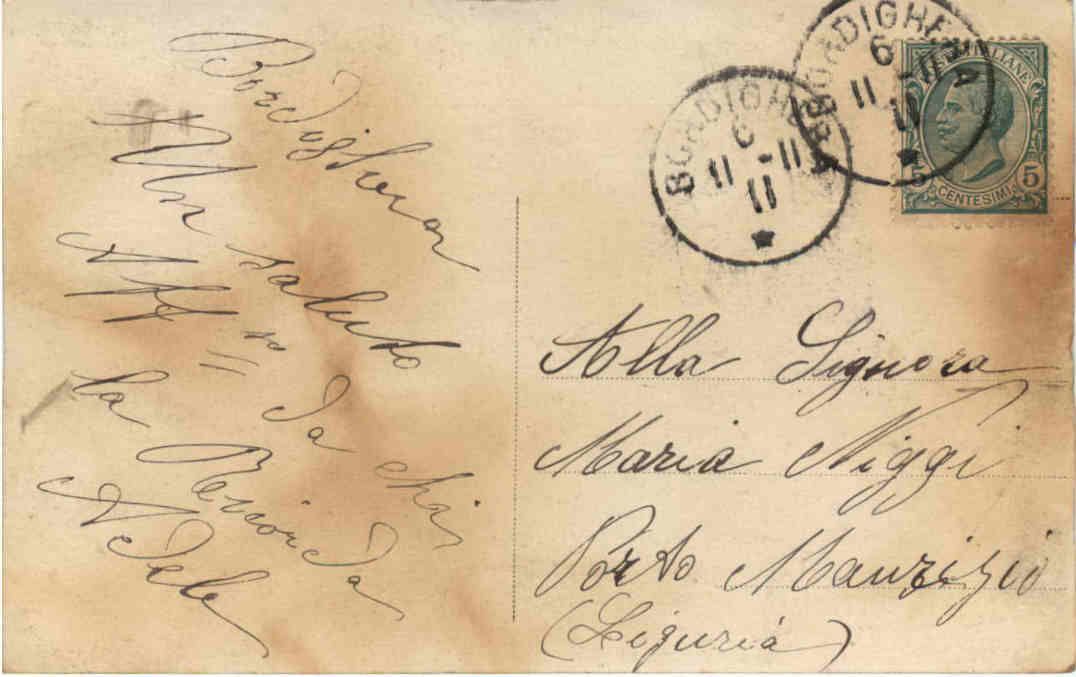 Bordighera
Un saluto
Aff.to da chi
la Ricorda
Adele
BORDIGHERA
6
11 - 11
11
BORDIGHERA
6
11 - 11
11
5 5
CENTESIMI
Alla Signora
Maria Niggi
Porto Maurizio
(Liguria)